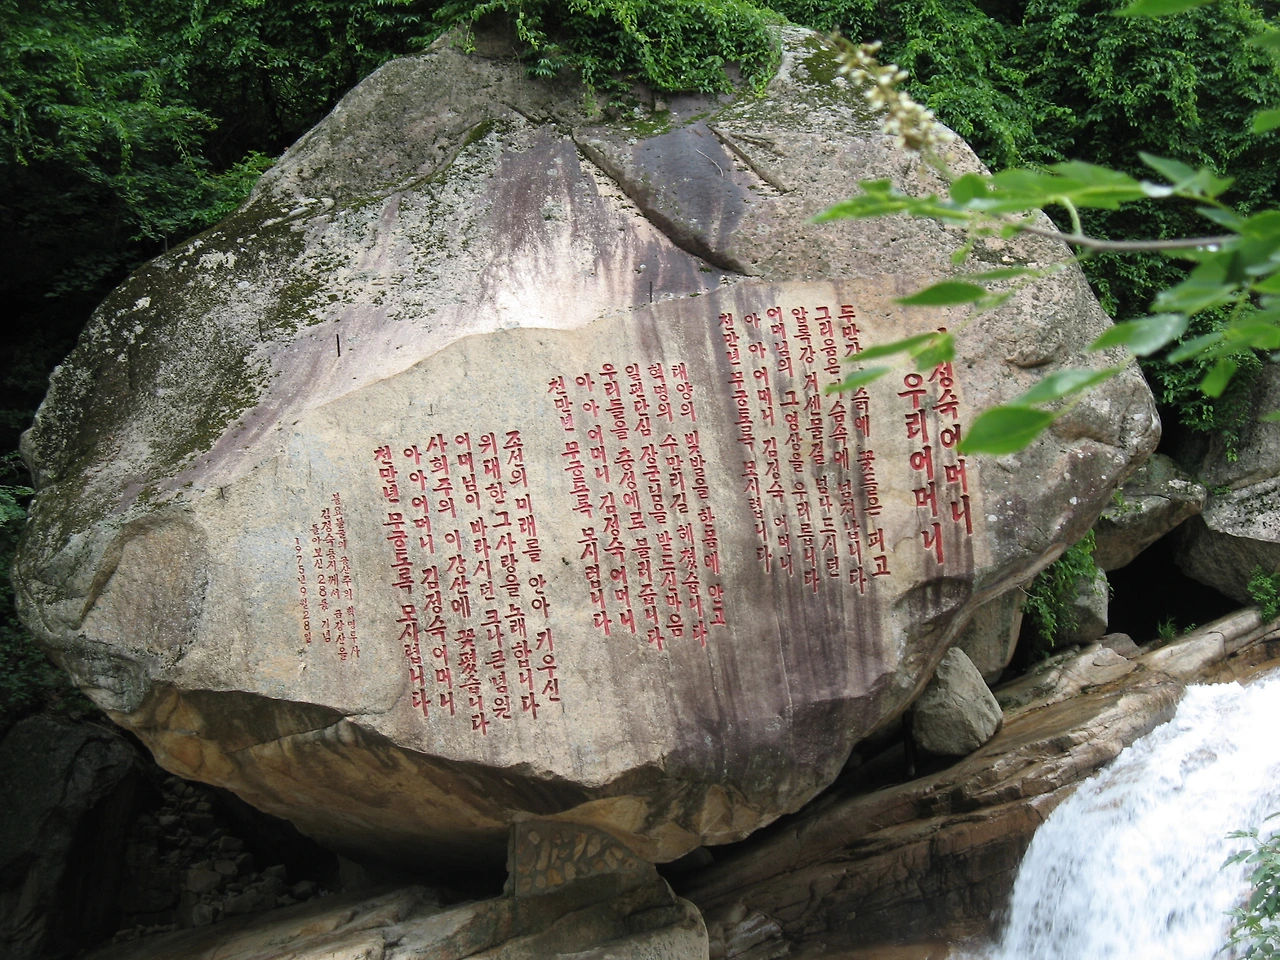 정숙어머니
우리어머니
두만강 슭에 꽃들은 피고
그리움은 가슴속에 넘쳐납니다
압록강 거센물결 넘나드시던
어머님의 그영상을 우러릅니다
아 아 어머니 김정숙 어머니
천만년 무궁토록 모시렵니다
태양의 빛발을 한몸에 안고
혁명의 수만리길 헤쳤습니다
일편단심 장군님을 받드신마음
우리들을 충성에로 불러줍니다
아 아 어머니 김정숙어머니
천만년 무궁토록 모시렵니다
조선의 미래를 안아 키우신
위대한 그사랑을 노래합니다
어머님이 바라시던 크나큰념원
사회주의 이강산에 꽃폈습니다
아 아 어머니 김정숙어머니
천만년 무궁토록 모시렵니다
불요불굴의 공산주의 혁명투사
김정숙동지께서 금강산을
돌아보신 28돐 기념
1975년9월28일